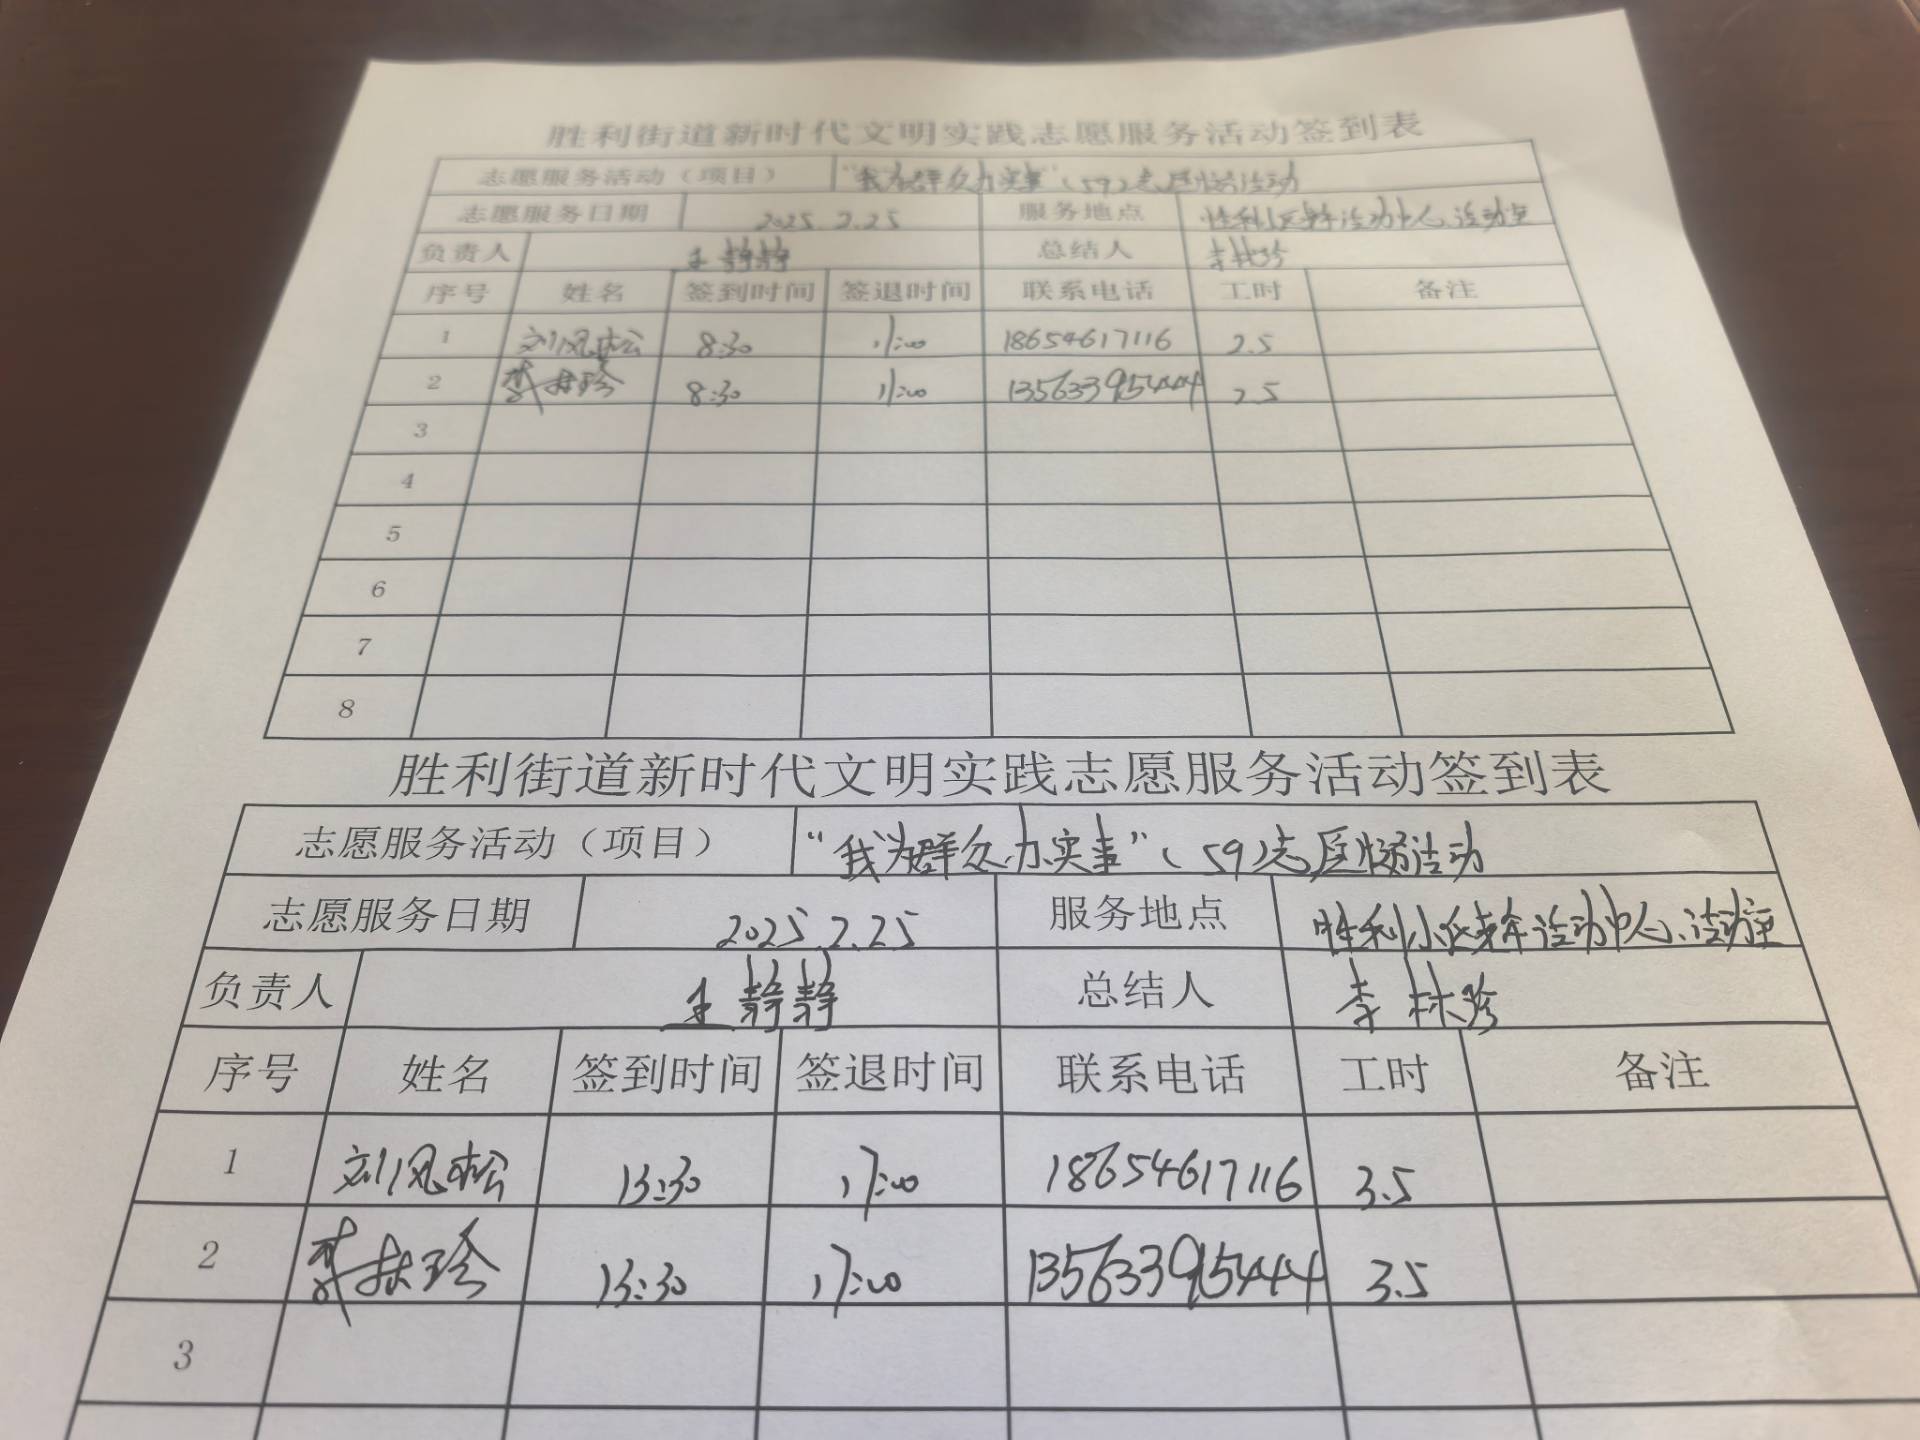 胜利街道新时代文明实践志愿服务活动签到表
志愿服务活动（项目） “我为群众办实事”（59）志愿服务活动
志愿服务日期 2025.2.25 服务地点 胜利小区老年活动中心、活动室
负责人 王静静 总结人 李林珍
序号 姓名 签到时间 签退时间 联系电话 工时 备注
1 刘凤松 8:30 11:00 18654617116 2.5
2 李林珍 8:30 11:00 13563395444 2.5
3
4
5
6
7
8
胜利街道新时代文明实践志愿服务活动签到表
志愿服务活动（项目） “我为群众办实事”（59）志愿服务活动
志愿服务日期 2025.2.25 服务地点 胜利小区老年活动中心、活动室
负责人 王静静 总结人 李林珍
序号 姓名 签到时间 签退时间 联系电话 工时 备注
1 刘凤松 13:30 17:00 18654617116 3.5
2 李林珍 13:30 17:00 13563395444 3.5
3